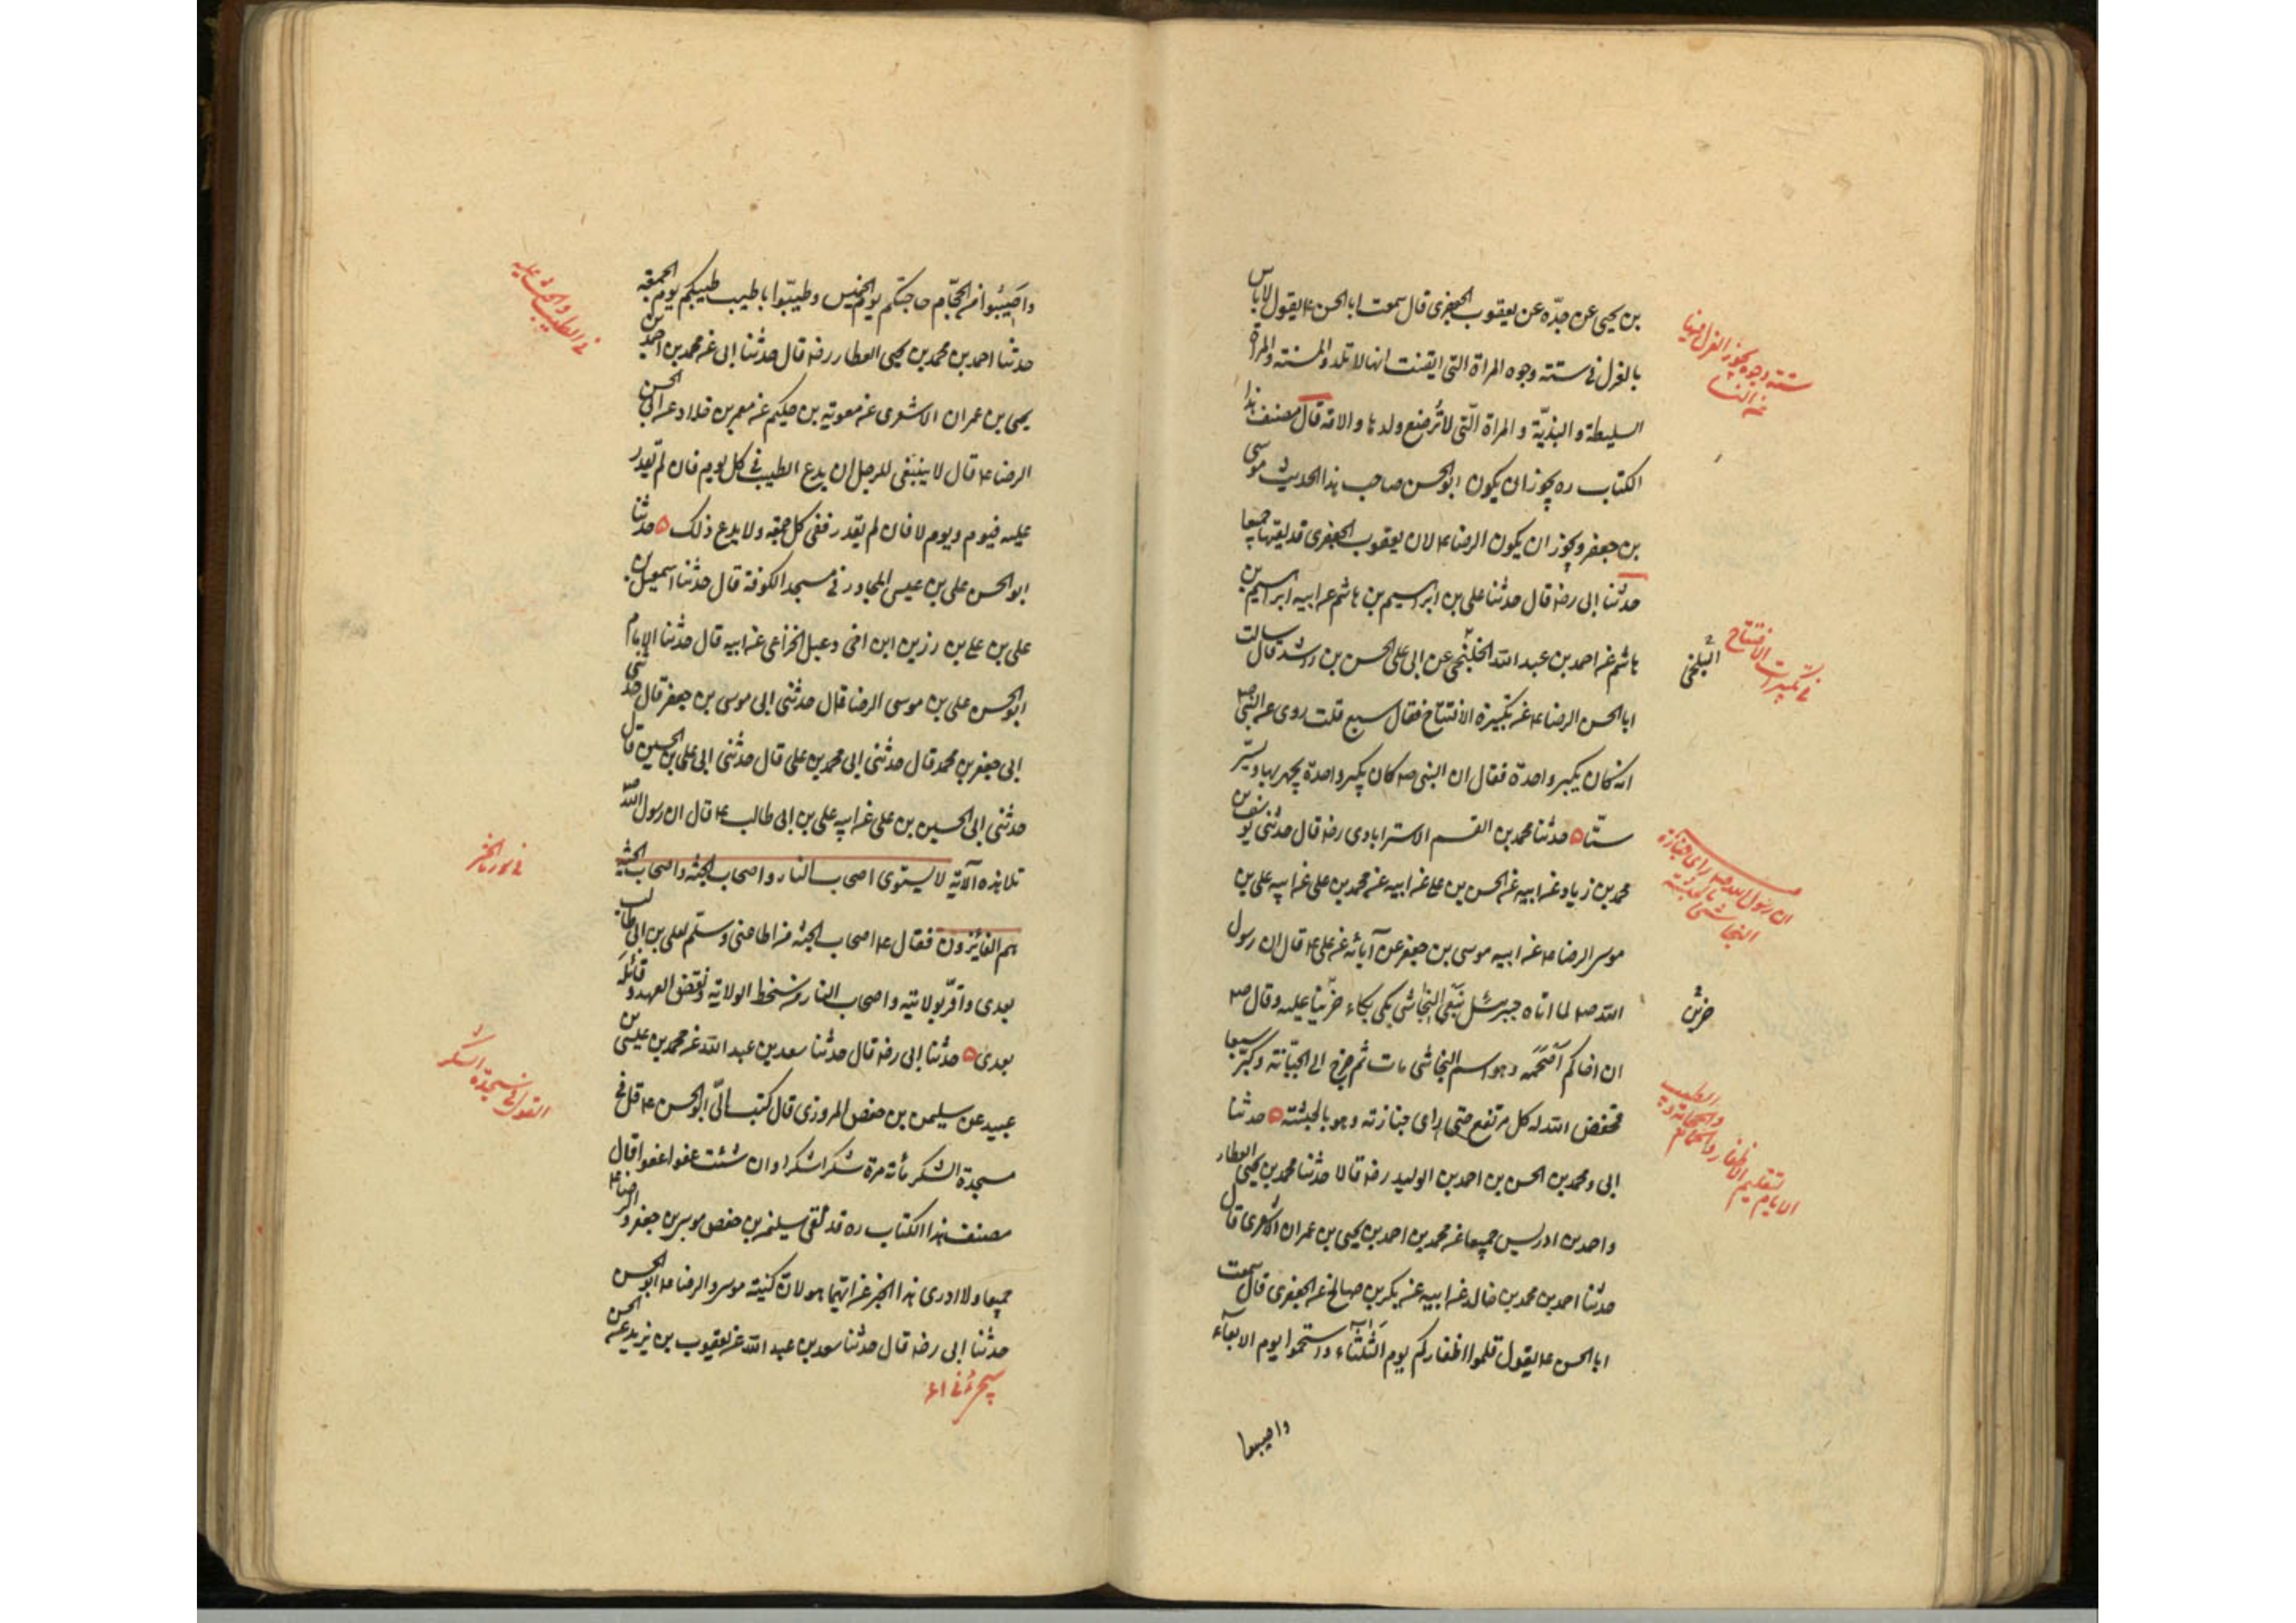 بن يحيى عن جدّه عن يعقوب الجعفرى قال سمعت ابا الحسن ع يقول لا باس
بالعزل فى ستة وجوه المراة التى ايقنت انها لا تلد والمسنة والمراة
السليطة و البذيّة و المراة الّتى لا تُرضع ولدها والامة قال مصنف هذا
الكتاب ره يجوز ان يكون ابو الحسن صاحب هذا الحديث موسى
بن جعفر ويجوز ان يكون الرضا ع لان يعقوب الجعفرى قد لقيهما جميعا
حدثنا ابى رضه قال حدثنا على بن ابراهيم بن هاشم عن ابيه ابراهيم بن
هاشم عن احمد بن عبد الله الخلنجى عن ابى على الحسن بن راشد قال سالت
ابا الحسن الرضا ع عن تكبيرة الافتتاح فقال سبع قلت روى عن النبى ص
انه كان يكبر واحدة فقال ان النبى ص كان يكبر واحدة يجهر بها ويسرّ
ستّا ه حدثنا محمد بن القسم الاسترابادى رضه قال حدثنى يوسف بن
محمد بن زياد عن ابيه عن الحسن بن على عن ابيه عن محمد بن على عن ابيه على بن
موسى الرضا ع عن ابيه موسى بن جعفر عن آبائه عن على ع قال ان رسول
الله ص لما اتاه جبرئيل بنعى النجاشى بكى بكاء حزينا عليه وقال ص
ان اخاكم اَصْحَمَه وهو اسم النجاشى مات ثم خرج الى الجبّانة وكبّر سبعا
فخفض الله له كل مرتفع حتى راى جنازته وهو بالحبشة ه حدثنا
ابى ومحمد بن الحسن بن احمد بن الوليد رضه قالا حدثنا محمد بن يحيى العطار
واحمد بن ادريس جميعا عن محمد بن احمد بن يحيى بن عمران الاشعرى قال
حدثنا احمد بن محمد بن خالد عن ابيه عن بكر بن صالح عن الجعفرى قال سمعت
ابا الحسن ع يقول قلموا اظفاركم يوم الثلثاء واستحموا يوم الاربعاء
واصيبوا
ستة وجوه يجوز العزل فيها
عن النسا
فى تكبيرات الافتتاح
البلخى
ان رسول الله ص راى جنازة
النجاشى بالحبشة
حزين
الطيب
والحجامة
لتقليم الاظفار
الايام
واصيبوا من الحجّام حاجتكم يوم الخميس وطيبّوا باطيب طيبكم يوم الجمعة
حدثنا احمد بن محمد بن يحيى العطار رضه قال حدثنا ابى عن محمد بن احمد بن
يحيى بن عمران الاشعرى عن معوية بن حكيم عن معمر بن خلاد عن ابى الحسن
الرضا ع قال لا ينبغى للرجل ان يدع الطيب فى كل يوم فان لم يقدر
عليه فيوم ويوم لا فان لم يقدر ففى كل جمعة ولا يدع ذلك ه حدثنا
ابو الحسن على بن عيسى المجاور فى مسجد الكوفة قال حدثنا اسمعيل بن
على بن على بن رزين ابن اخى دعبل الخزاعى عن ابيه قال حدثنا الامام
ابو الحسن على بن موسى الرضا قال حدثنى ابى موسى بن جعفر قال حدثنى
ابى جعفر بن محمد قال حدثنى ابى محمد بن على قال حدثنى ابى على بن الحسين قال
حدثنى ابى الحسين بن على عن ابيه على بن ابى طالب ع قال ان رسول الله ص
تلا هذه الآية لا يستوى اصحاب النار واصحاب الجنّة واصحاب الجنّة
هم الفائزون فقال ع اصحاب الجنّة من اطاعنى وسلّم لعلى بن ابى طالب
بعدى واقرّ بولايته واصحاب النار من سخط الولاية ونقض العهد وقاتله
بعدى ه حدثنا ابى رضه قال حدثنا سعد بن عبد الله عن محمد بن عيسى بن
عبيد عن سليمن بن حفص المروزى قال كتب الىّ ابو الحسن ع قل فى
سجدة الشكر مائة مرة شكرا شكرا وان شئت عفوا عفوا قال
مصنف هذا الكتاب ره قد لقى سليمن بن حفص موسى بن جعفر والرضا ع
جميعا ولا ادرى هذا الخبر عن ايّهما هو لان كنية موسى والرضا ع ابو الحسن
حدثنا ابى رضه قال حدثنا سعد بن عبد الله عن يعقوب بن يزيد عن الحسن
فى الطيب والحث عليه
القول فى سجدة الشكر